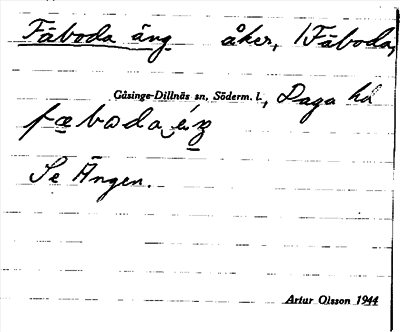 Fäboda äng åker, Fäboda,
Gåsinge-Dillnäs sn, Söderm. l., Daga hd
Se Ängen.
Artur Olsson 1944